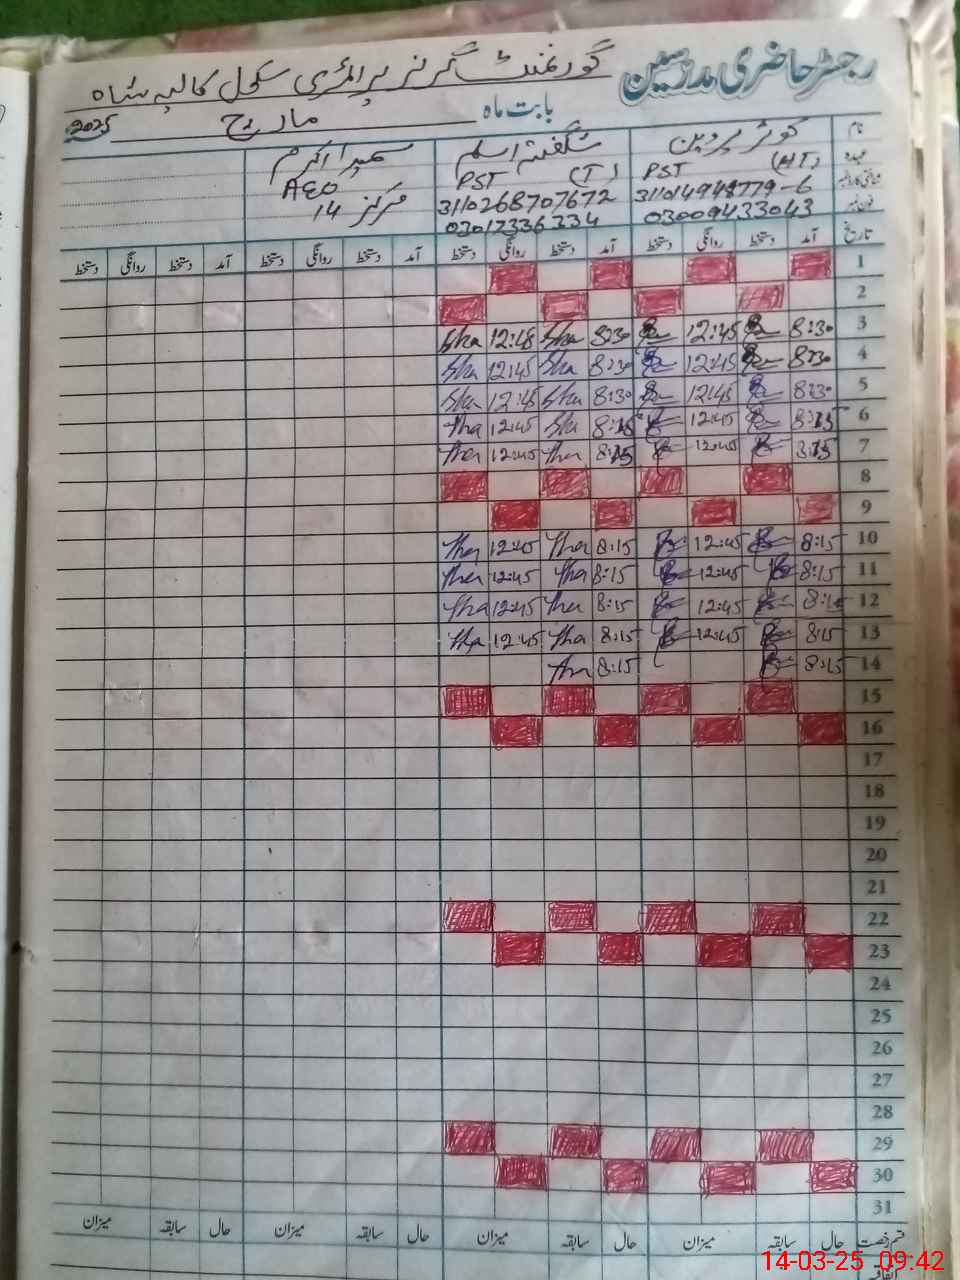 رجسٹر حاضری مدرسین گورنمنٹ گرلز پرائمری سکول کالیہ شاہ
بابت ماہ مارچ 2025
نام کوثر پروین شگفتہ اسلم سمیرا اکرم
عہدہ PST (HT) PST (T) AEO
شناختی کارڈ نمبر 311014948779-6 3110268707672 مرکز 14
فون نمبر 03009433043 03012336334
تاریخ آمد دستخط روانگی دستخط آمد دستخط روانگی دستخط آمد دستخط روانگی دستخط آمد دستخط روانگی دستخط
1
2
3 8:30 12:45 8:30 Sha 12:45 Sha
4 8:30 12:45 8:30 Sha 12:45 Sha
5 8:30 12:45 8:30 Sha 12:45 Sha
6 8:15 12:45 8:15 Sha 12:45 Sha
7 8:15 12:45 8:15 Sha 12:45 Sha
8
9
10 8:15 12:45 8:15 Sha 12:45 Sha
11 8:15 12:45 8:15 Sha 12:45 Sha
12 8:15 12:45 8:15 Sha 12:45 Sha
13 8:15 12:45 8:15 Sha 12:45 Sha
14 8:15 8:15 Sha
15
16
17
18
19
20
21
22
23
24
25
26
27
28
29
30
31
قسم رخصت حال سابقہ میزان حال سابقہ میزان حال سابقہ میزان حال سابقہ میزان
اتفاقیہ
14-03-25 09:42